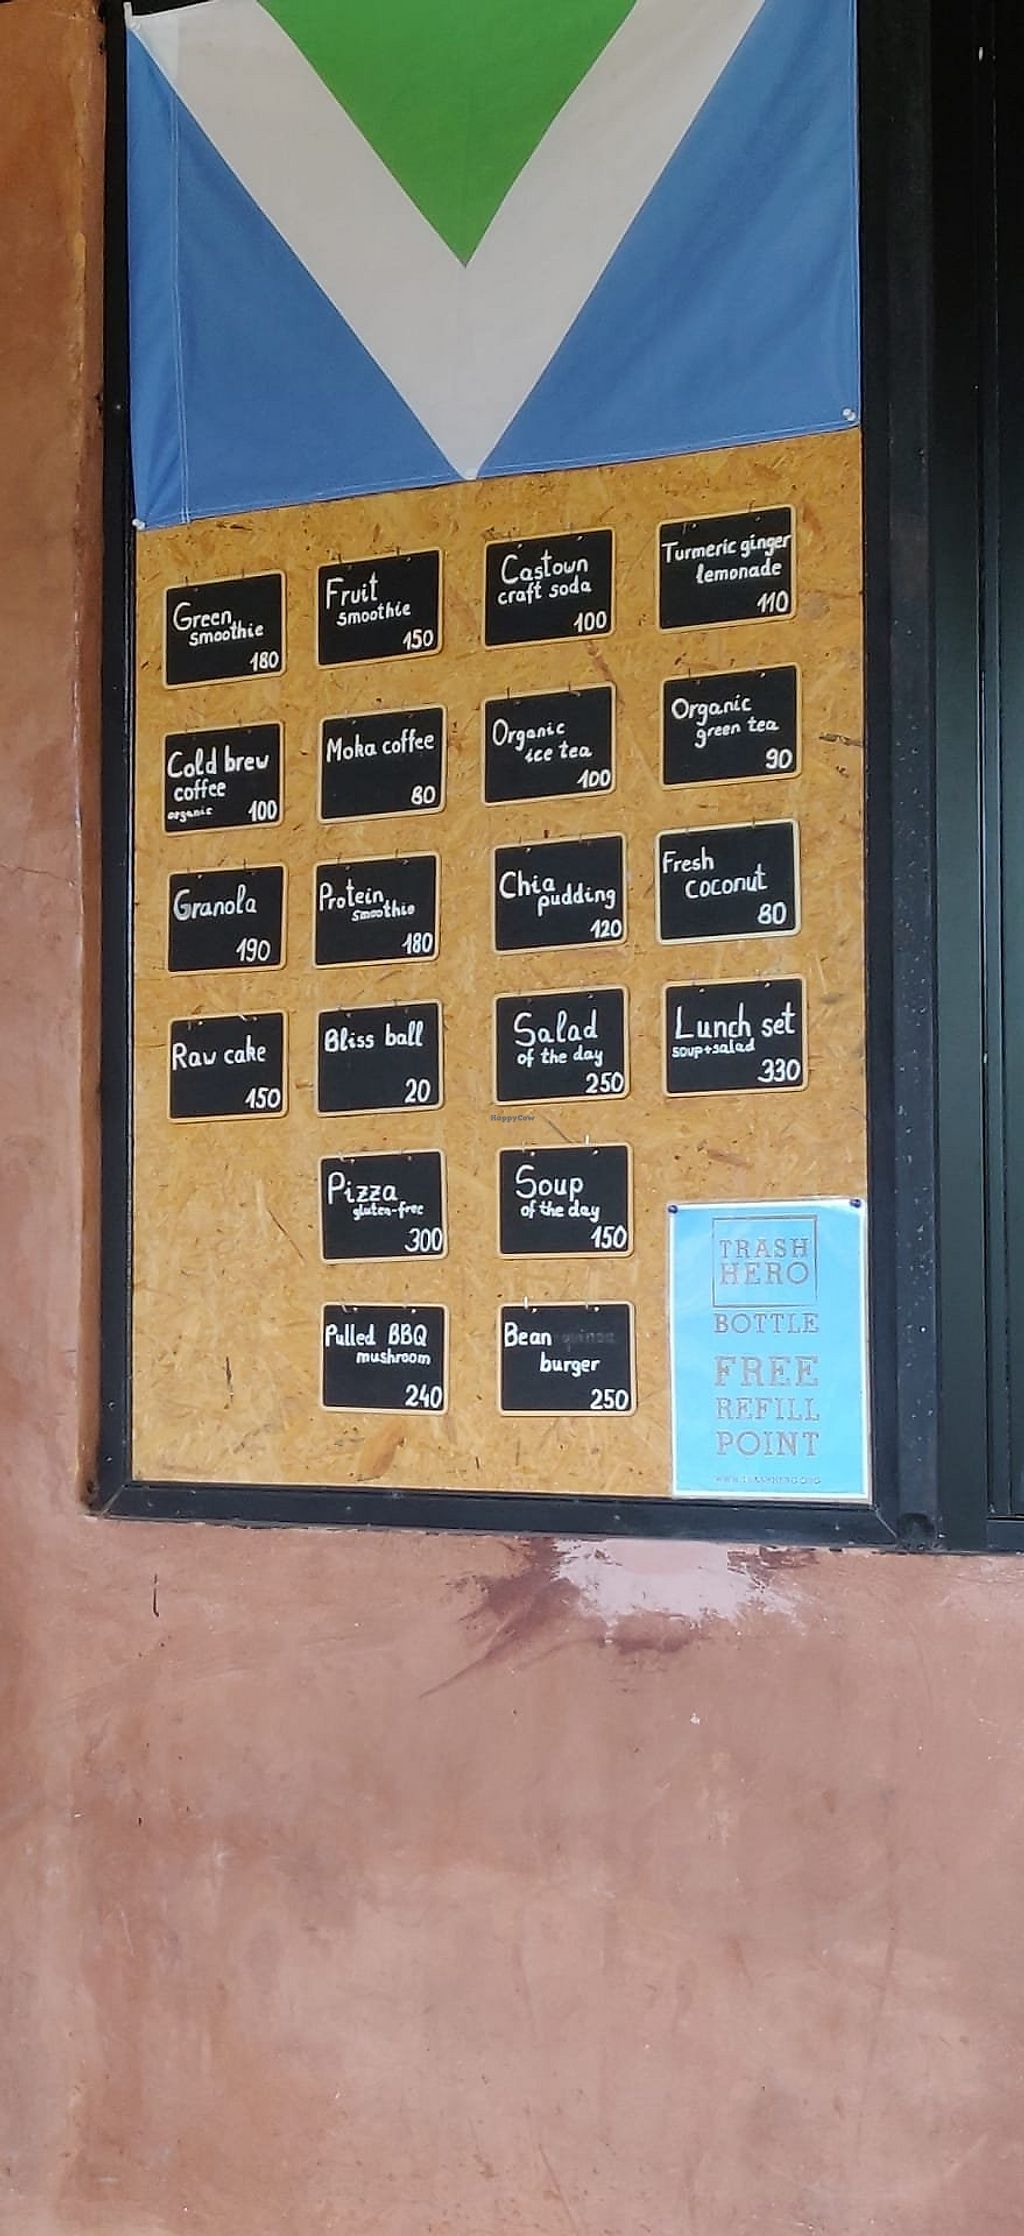 Green
smoothie
180
Fruit
smoothie
150
Castown
craft soda
100
Turmeric ginger
lemonade
110
Cold brew
coffee
organic 100
Moka coffee
80
Organic
ice tea
100
Organic
green tea
90
Granola
190
Protein
smoothie
180
Chia
pudding
120
Fresh
coconut
80
Raw cake
150
Bliss ball
20
Salad
of the day
250
Lunch set
soup+salad
330
HappyCow
Pizza
gluten-free
300
Soup
of the day
150
Pulled BBQ
mushroom
240
Bean
burger
250
TRASH
HERO
BOTTLE
FREE
REFILL
POINT
WWW.TRASHHERO.ORG